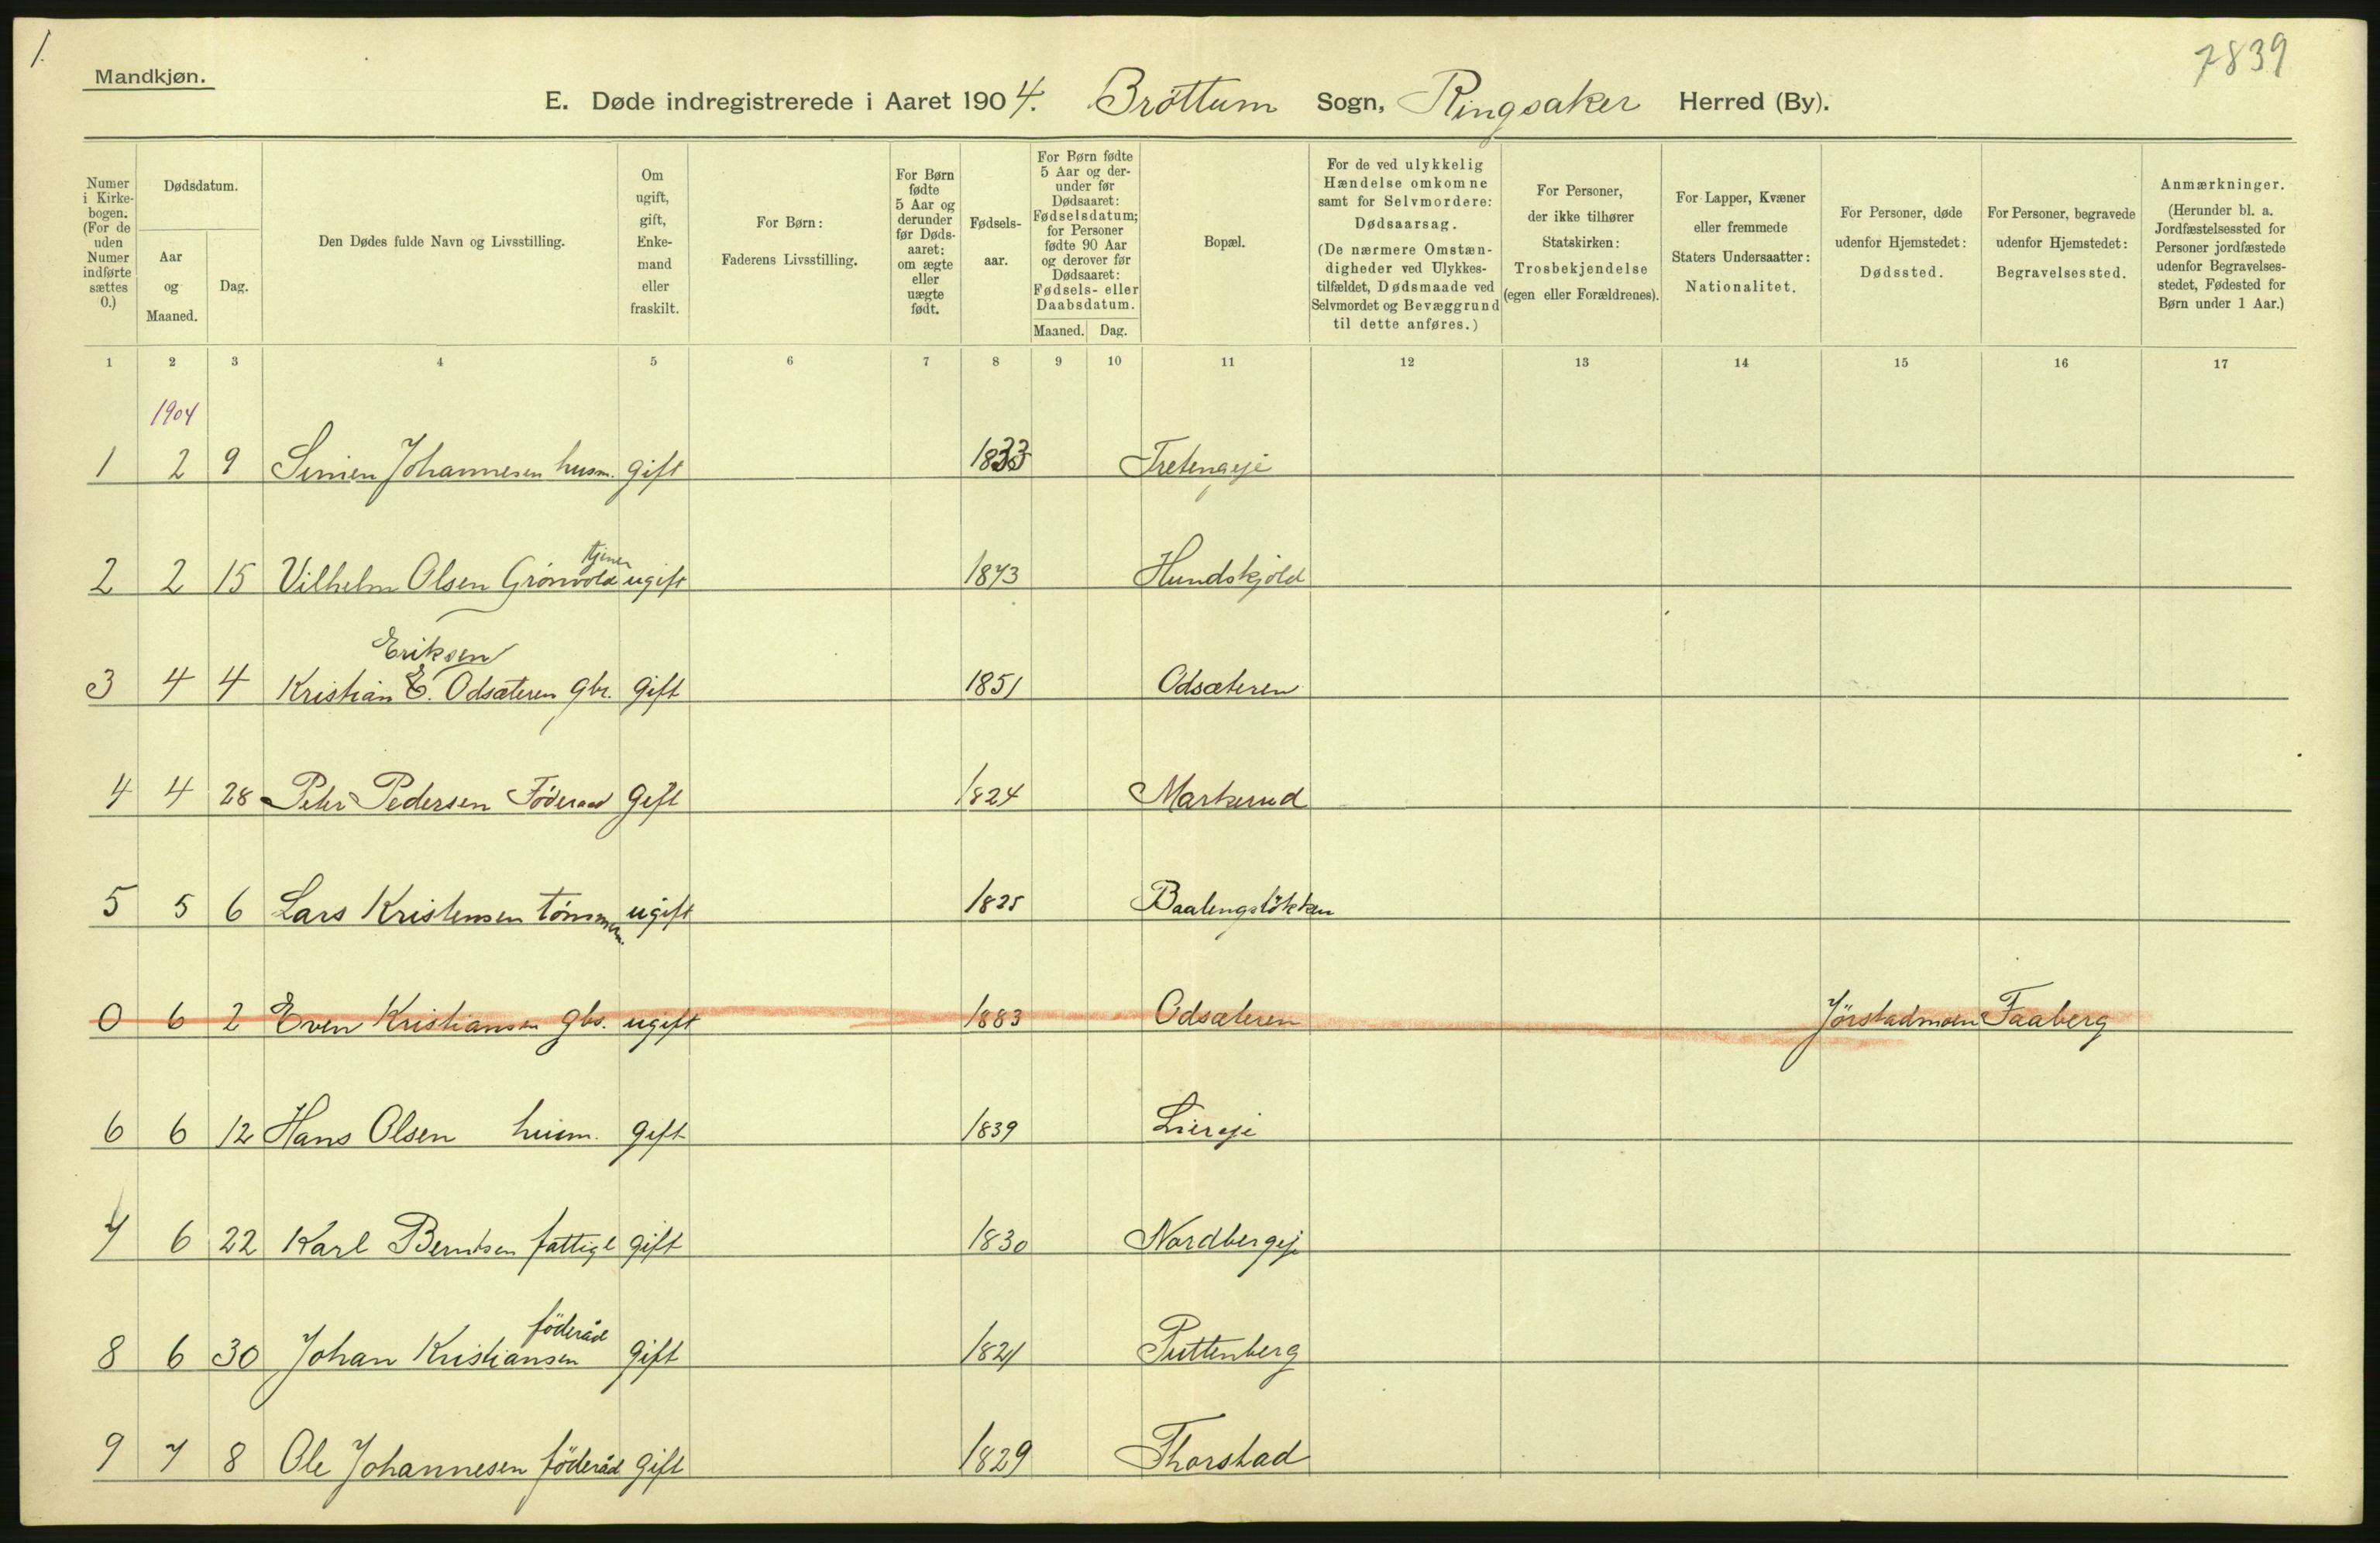 1.
7839
Mandkjøn.
E. Døde indregistrerede i Aaret 1904. Brøttum Sogn, Ringsaker Herred (By).
Numer i Kirkebogen. (For de uden Numer indførte sættes 0.)
Dødsdatum.
Aar og Maaned.
Dag.
Den Dødes fulde Navn og Livsstilling.
Om ugift, gift, Enkemand eller fraskilt.
For Børn: Faderens Livsstilling.
For Børn fødte 5 Aar og derunder før Dødsaaret: om ægte eller uægte født.
Fødselsaar.
For Børn fødte 5 Aar og derunder før Dødsaaret: Fødselsdatum; for Personer fødte 90 Aar og derover før Dødsaaret: Fødsels- eller Daabsdatum.
Maaned. Dag.
Bopæl.
For de ved ulykkelig Hændelse omkomne samt for Selvmordere: Dødsaarsag. (De nærmere Omstændigheder ved Ulykkestilfældet, Dødsmaade ved Selvmordet og Bevæggrund til dette anføres.)
For Personer, der ikke tilhører Statskirken: Trosbekjendelse (egen eller Forældrenes).
For Lapper, Kvæner eller fremmede Staters Undersaatter: Nationalitet.
For Personer, døde udenfor Hjemstedet: Dødssted.
For Personer, begravede udenfor Hjemstedet: Begravelsessted.
Anmærkninger. (Herunder bl. a. Jordfæstelsessted for Personer jordfæstede udenfor Begravelsesstedet, Fødested for Børn under 1 Aar.)
1 2 3 4 5 6 7 8 9 10 11 12 13 14 15 16 17
1904
1 2 9 Simen Johannesen husm. gift 1833 Fretengeje
tjener
2 2 15 Vilhelm Olsen Grönvold ugift 1873 Hundskjold
Eriksen
3 4 4 Kristian E. Odsæteren gbr. gift 1851 Odsæteren
4 4 28 Peter Pedersen Föderaad gift 1824 Markerud
5 5 6 Lars Kristensen tömmerm. ugift 1825 Baalengslökken
0 6 2 Even Kristiansen gbs. ugift 1883 Odsæteren Jörstadmoen Faaberg
6 6 12 Hans Olsen husm. gift 1839 Liereje
7 6 22 Karl Berntsen fattigl gift 1830 Nordbergeje
föderåd
8 6 30 Johan Kristiansen gift 1821 Puttenberg
9 7 8 Ole Johannesen föderåd gift 1829 Thorstad